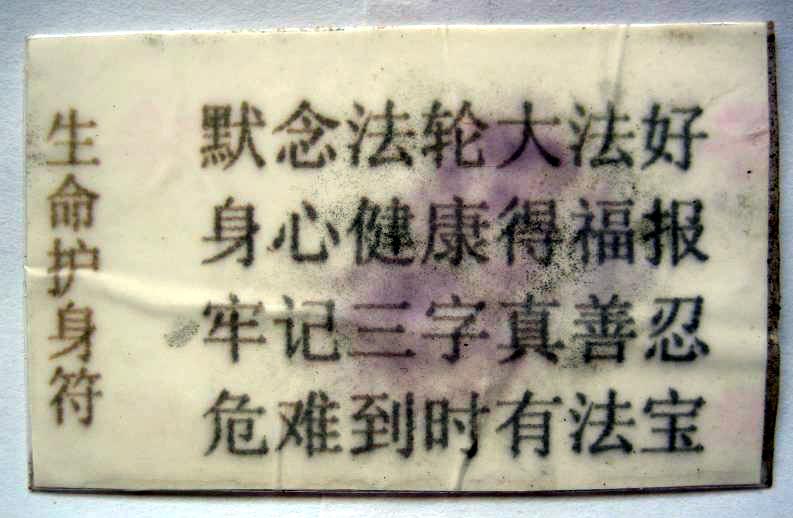 生命护身符
默念法轮大法好
身心健康得福报
牢记三字真善忍
危难到时有法宝